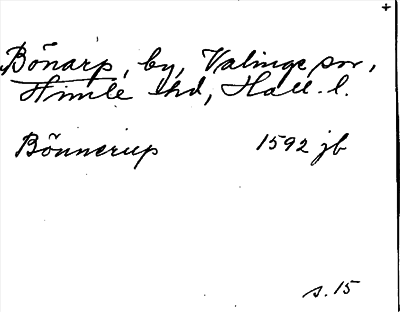 +
Bönarp, by, Valinge sn,
Himle hd, Hall. l.
Bönnerup 1592 jb
s. 15